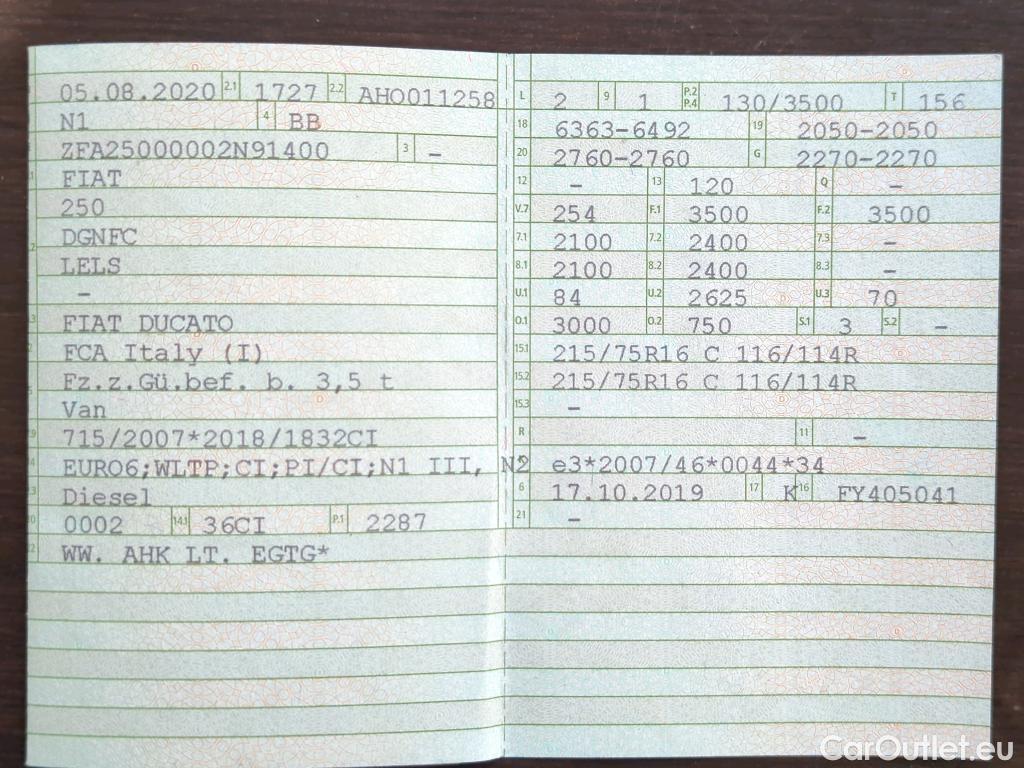 05.08.2020 2.1 1727 2.2 AHO011258
N1 4 BB
ZFA25000002N91400 3 –
FIAT
250
DGNFC
LELS
–
FIAT DUCATO
FCA Italy (I)
Fz.z.Gü.bef. b. 3,5 t
Van
715/2007*2018/1832CI
EURO6;WLTP;CI;PI/CI;N1 III, N2
Diesel
0002 14.1 36CI P.1 2287
WW. AHK LT. EGTG*
L 2 9 1 P.2 P.4 130/3500 T 156
18 6363-6492 19 2050-2050
20 2760-2760 G 2270-2270
12 – 13 120 Q –
V.7 254 F.1 3500 F.2 3500
7.1 2100 7.2 2400 7.3 –
8.1 2100 8.2 2400 8.3 –
U.1 84 U.2 2625 U.3 70
O.1 3000 O.2 750 S.1 3 S.2 –
15.1 215/75R16 C 116/114R
15.2 215/75R16 C 116/114R
15.3 –
R 11 –
e3*2007/46*0044*34
6 17.10.2019 17 K 16 FY405041
21 –
CarOutlet.eu